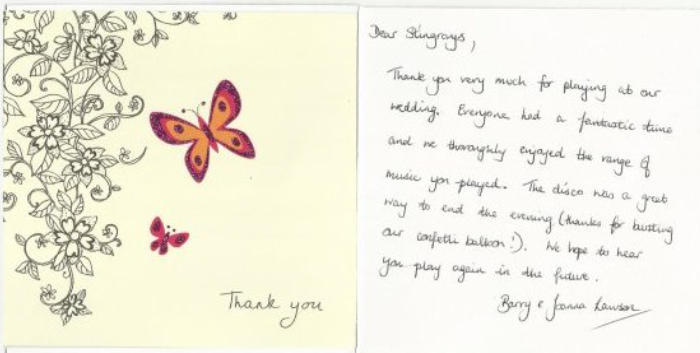 Thank you
Dear Stingrays,
Thank you very much for playing at our
wedding. Everyone had a fantastic time
and we thoroughly enjoyed the range of
music you played. The disco was a great
way to end the evening (thanks for busting
our confetti balloon!). We hope to hear
you play again in the future.
Barry & Joanna Lawson